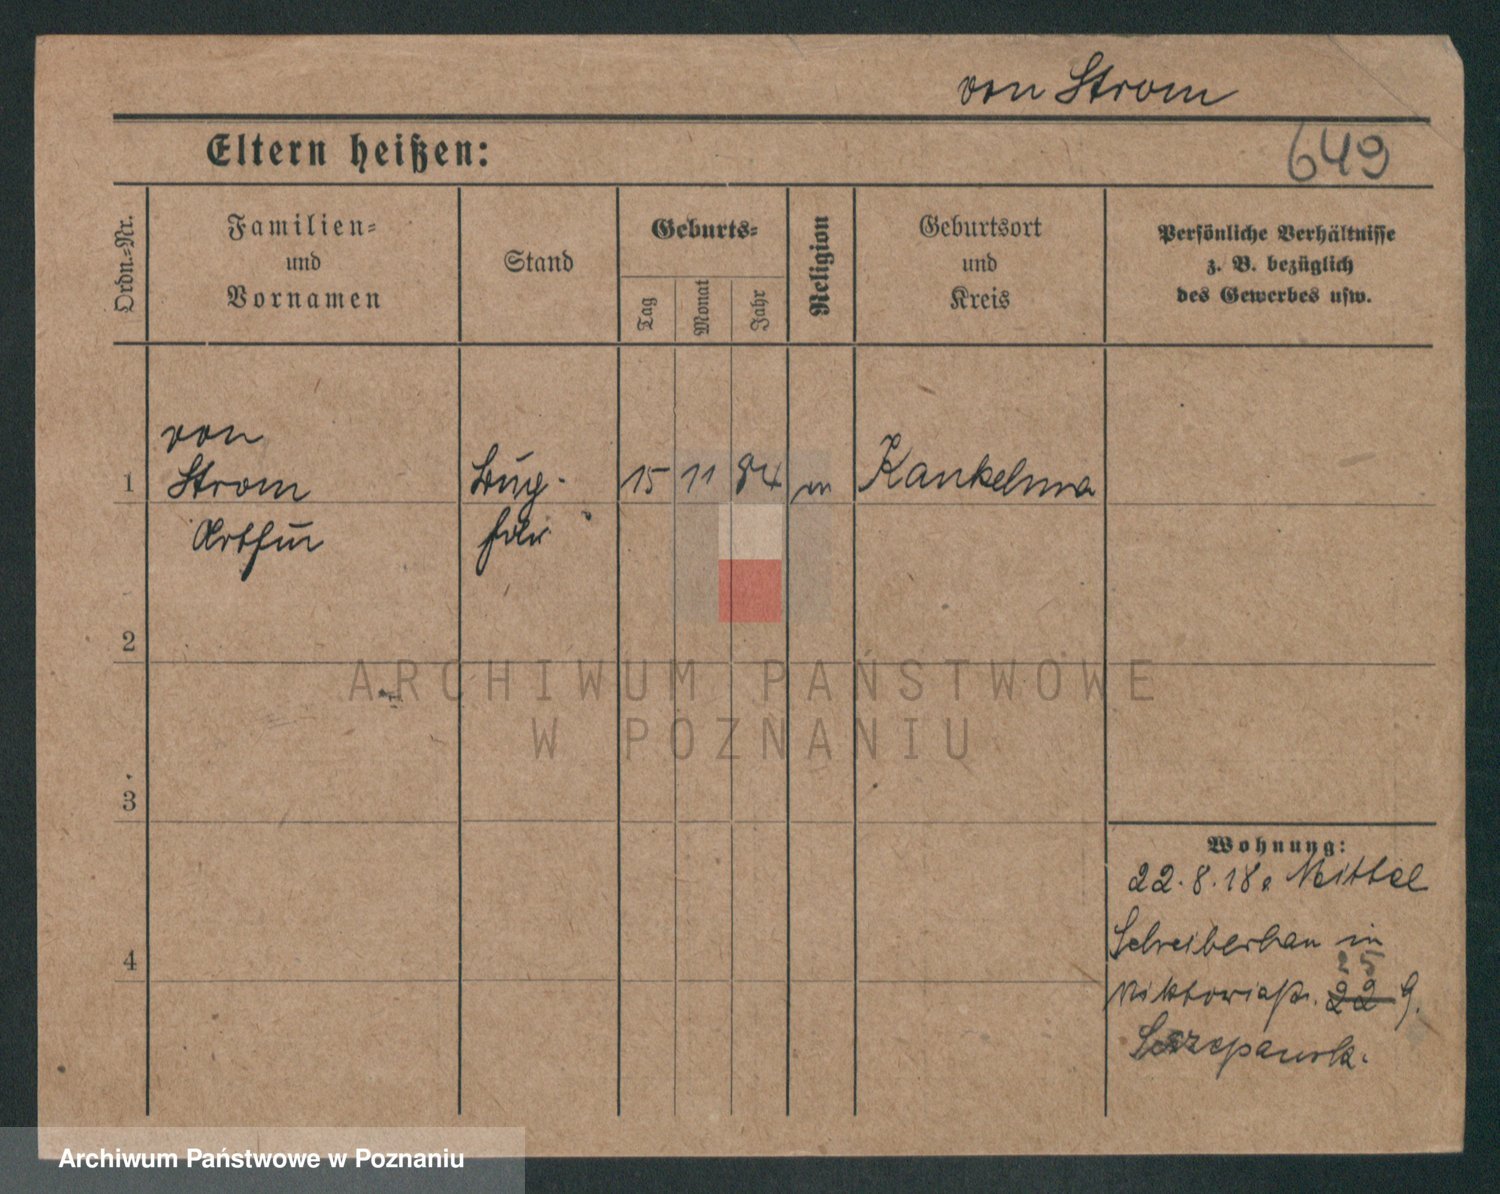 von Strom
Eltern heißen:
649
Ordn.-Nr.
Familien-
und
Vornamen
Stand
Geburts-
Tag
Monat
Jahr
Religion
Geburtsort
und
Kreis
Persönliche Verhältnisse
z. B. bezüglich
des Gewerbes usw.
von
1 Strom 15 11 84 Kankelmo
Arthur
2
ARCHIWUM PAŃSTWOWE
W POZNANIU
3
Wohnung:
22.8.18. Mittel
Schreiberhau in
4
25
Viktoriastr. 22 9.
Szczepansk.
Archiwum Państwowe w Poznaniu